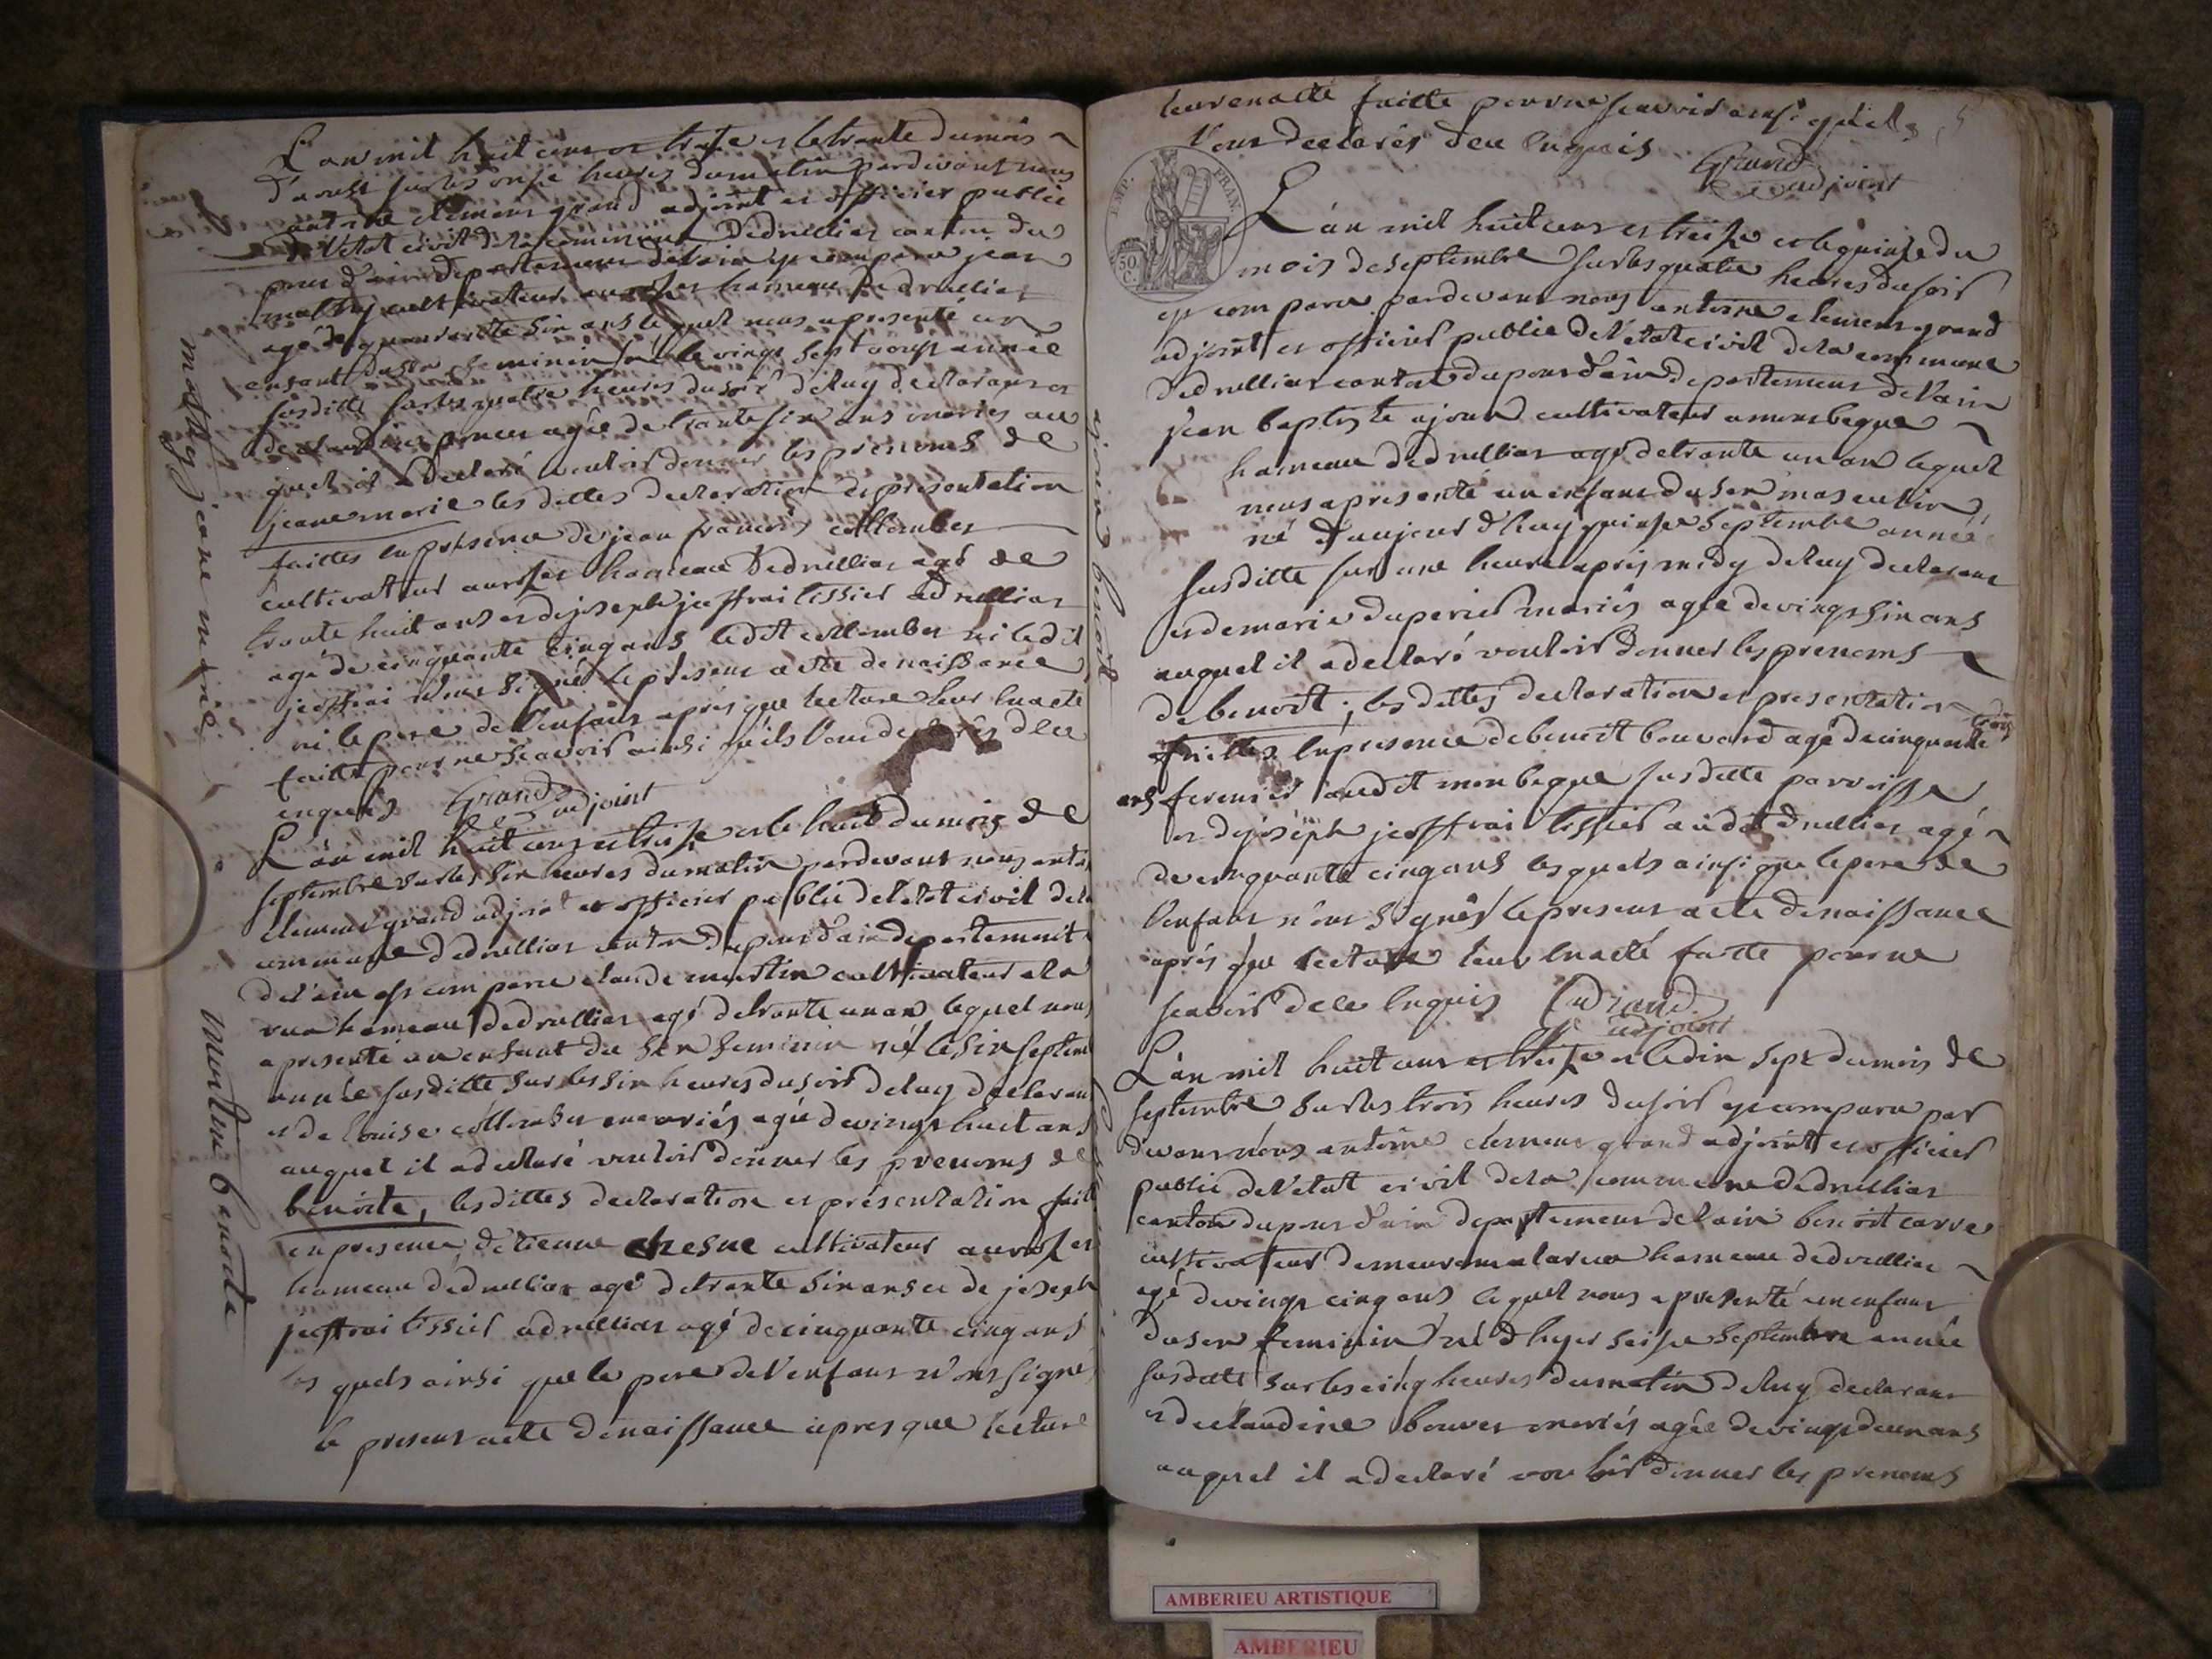 L'an mil huit cens et treise et le trante du mois
d'aoust sur les onse heures du matin pardevant nous
antoine clemens grand adjoint et officier public
de l'état civil de la commune de druillias canton du
pons d'ain departemens de l'ain est comparu jean
mathy cultivateur hameau de druillias
agé de quarante six ans lequel nous a presenté un
enfant du sex feminin né le vingt sept aoust année
susditte sur les quatre heures du soir de luy declarans et
de claudine agée de trante six ans mariés au
quel il a declaré vouloir donner les prenoms de
jeane marie les dittes declaration et presentation
faittes en presence de jean francois collomber
cultivateur hameau de druillias agé de
trante huit ans et de joseph jeoffrai tissier a druillias
agé de cinquante cinq ans ledit collomber ni ledit
jeoffrai n'ons signé le presens acte de naissance
ni le pere de l'enfans après que lecture leur en a eté
faitte pour ne scavoir ainsi qu'ils l'ons declarés de ce
enquis Grand
adjoint
mathy jeane marie
L'an mil huit cens et treise et le huit du mois de
septembre sur les six heures du matin pardevant nous antoi
clemens grand adjoint et officier public de l'etat civil de la
commune de druillias canton du pons d'ain departement
de l'ain est comparu claude martin cultivateur a la
rua hameau de druillias agé de trante un an lequel nous
a presenté un enfant du sex feminin né le six septem
année susditte sur les six heures du soir de luy declarans
et de louise collomber mariés agée de vingt huit ans
auquel il a declaré vouloir donner les prenoms de
benoite, les dittes declaration et presentation fait
en presence d'etienne chesne cultivateur
hameau de druillias agé de trante six ans et de joseph
jeoffrai tissier a druillias agé de cinquante cinq ans
les quels ainsi que le pere de l'enfans n'ons signé
le presens acte de naissance après que lecture
martin benoite
leur en a eté faitte pour ne scavoir ainsi qu'ils
l'ons declarés de ce enquis Grand
adjoint
EMP. FRAN.
50 C.
L'an mil huit cens et treise et le quinse du
mois de septembre sur les quatre heures du soir
est comparu pardevans nous antoine clemens grand
adjoint et officier public de l'état civil de la commune
de druillias canton du pons d'ain departemens de l'ain
jean baptiste ajoux cultivateur a monbegue
hameau de druillias agé de trante un an lequel
nous a presenté un enfans du sex masculin
né d'aujourd'huy quinse septembre année
susditte sur une heure après midy de luy declarans
et de marie duperier mariés agée de vingt six ans
auquel il a declaré vouloir donner les prenoms
de benoit; les dittes declaration et presentation
faittes en presence de benoit bouvard agé de cinquante trois
ans fermier audit monbegue susditte parroisse
et de joseph jeoffrai tissier audit druillias agé
de cinquante cinq ans les quels ainsi que le pere de
l'enfans n'ons signés le presens acte de naissance
après que lecture leur en a eté faitte pour ne
scavoir de ce enquis Grand
adjoint
ajoux benoit
L'an mil huit cens et treise et le dix sept du mois de
septembre sur les trois heures du soir est comparu par
devans nous antoine clemens grand adjoint et officier
public de l'état civil de la commune de druillias
canton du pons d'ain departemens de l'ain benoit carre
cultivateur demeurans a la rua hameau de druillias
agé de vingt cinq ans lequel nous a presenté un enfans
du sex feminin né d'hyer seise septembre année
susditte sur les cinq heures du matin de luy declarans
et de claudine bouver mariés agée de vingt deux ans
auquel il a declaré vouloir donner les prenoms
AMBERIEU ARTISTIQUE
AMBERIEU